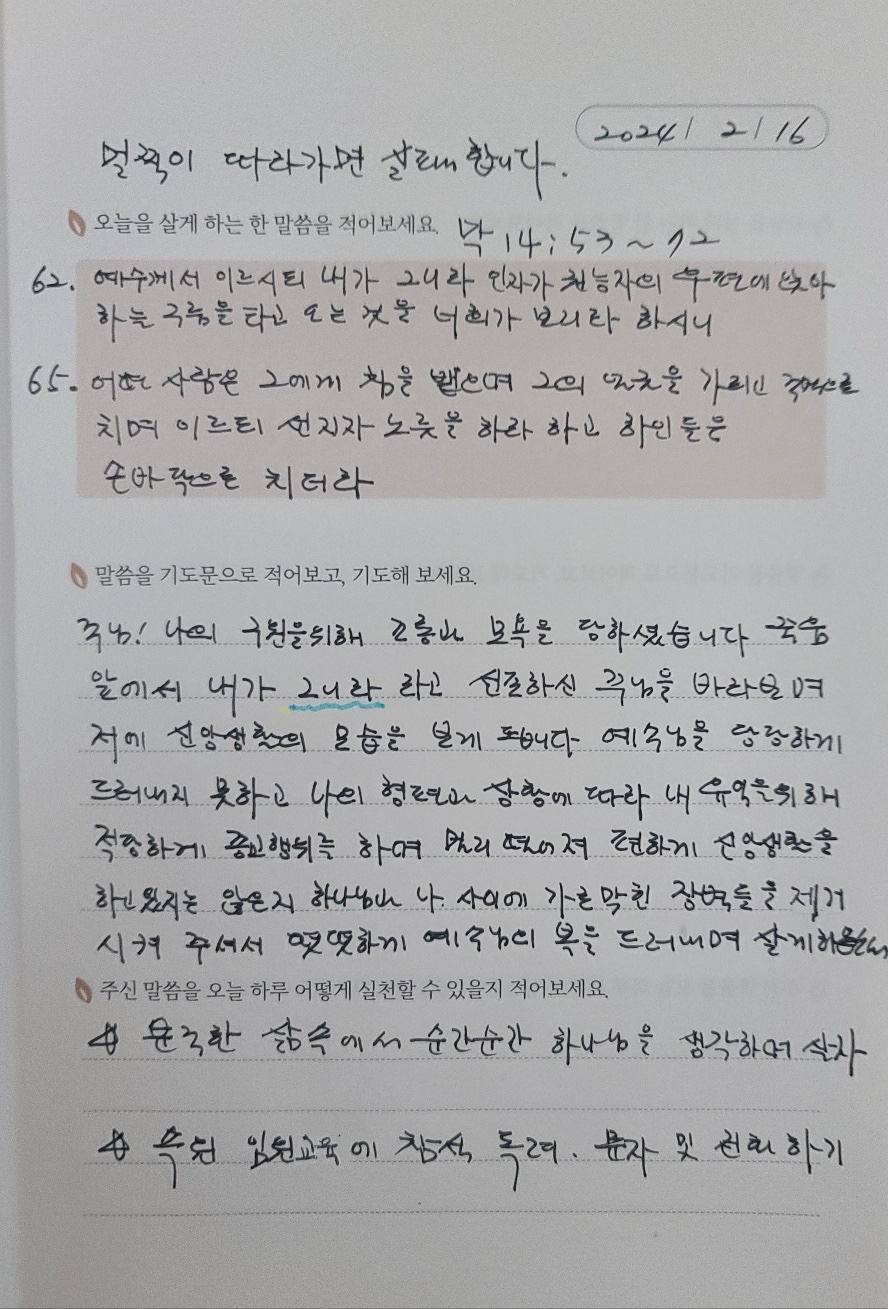 2024 / 2 / 16
멀찍이 따라가면 살려 합니다.
오늘을 살게 하는 한 말씀을 적어보세요.
막 14:53~72
62. 예수께서 이르시되 내가 그니라 인자가 권능자의 우편에 앉아
하늘 구름을 타고 오는 것을 너희가 보리라 하시니
65. 어떤 사람은 그에게 침을 뱉으며 그의 얼굴을 가리고 주먹으로
치며 이르되 선지자 노릇을 하라 하고 하인들은
손바닥으로 치더라
말씀을 기도문으로 적어보고, 기도해 보세요.
주님! 나의 구원을위해 고통과 모욕을 당하셨습니다 죽음
앞에서 내가 그니라 라고 선포하신 주님을 바라보며
저에 신앙생활의 모습을 보게 됩니다 예수님을 당당하게
드러내지 못하고 나의 형편과 상황에 따라 내 유익을위해
적당하게 종교행위를 하며 멀리 떨어져 편하게 신앙생활을
하고있지는 않은지 하나님과 나. 사이에 가로막힌 장벽들을 제거
시켜 주셔서 떳떳하게 예수님의 복을 드러내며 살게하옵소서
주신 말씀을 오늘 하루 어떻게 실천할 수 있을지 적어보세요.
분주한 삶속에서 순간순간 하나님을 생각하며 살자
임원교육에 참석 독려. 문자 및 전화 하기